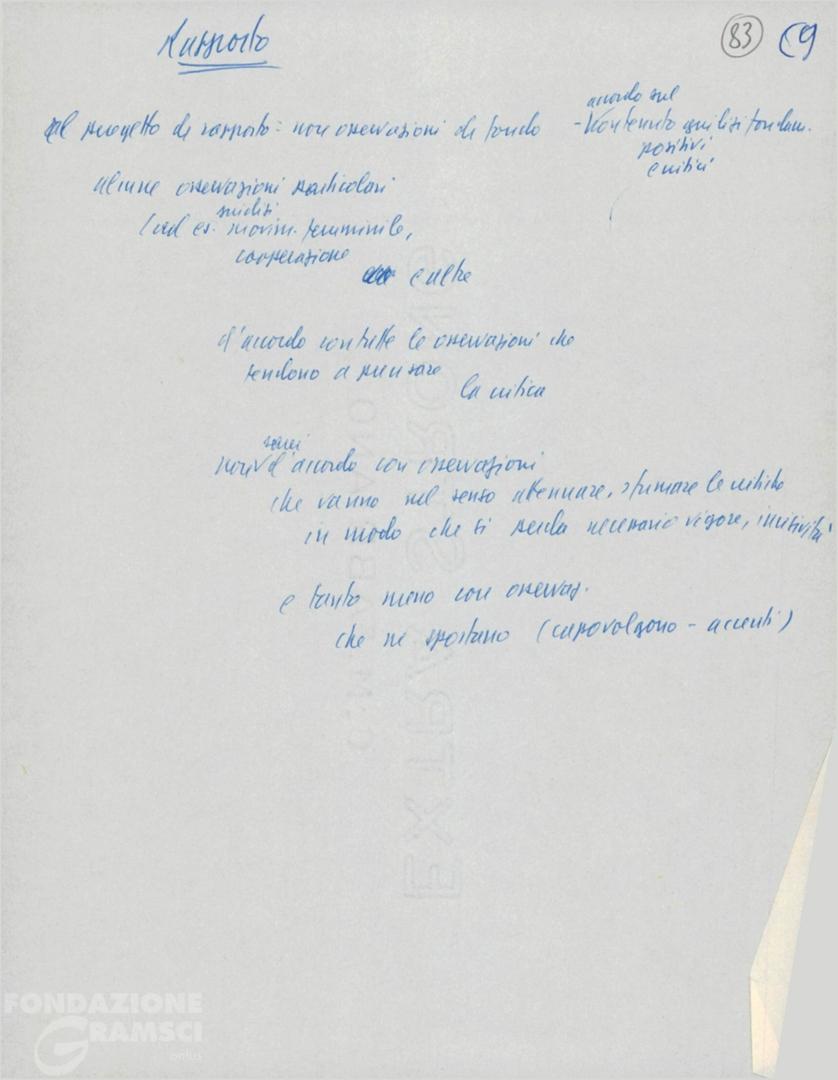 Rapporto
83 9
al progetto di rapporto: non osservazioni di fondo
accordo sul
- contenuto giudizi fondam.
positivi
critici
alcune osservazioni particolari
giudizi
(ad es. movim. femminile,
cooperazione
e altre
d'accordo con tutte le osservazioni che
tendono a precisare
la critica
sarei
non d'accordo con osservazioni
che vanno nel senso attenuare, sfumare le critiche
in modo che si perda necessario vigore, incisività
e tanto meno con osservaz.
che ne spostano (capovolgono - accenti)
EXTRA STRONG
FONDAZIONE
GRAMSCI
onlus